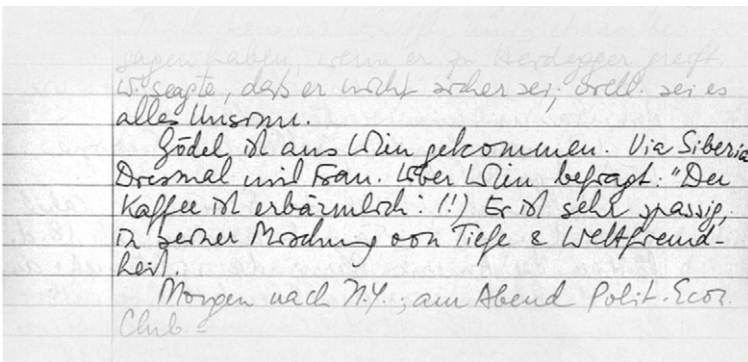 sagen haben, wenn er zu Heidegger greift.
W. sagte, daß er nicht sicher sei; viell. sei es
alles Unsinn.
Gödel ist aus Wien gekommen. Via Siberia
Diesmal mit Frau. Über Wien befragt: "Der
Kaffee ist erbärmlich": !!) Er ist sehr spassig,
in seiner Mischung von Tiefe & Weltfremd-
heit.
Morgen nach N.Y.; am Abend Polit. Econ.
Club.